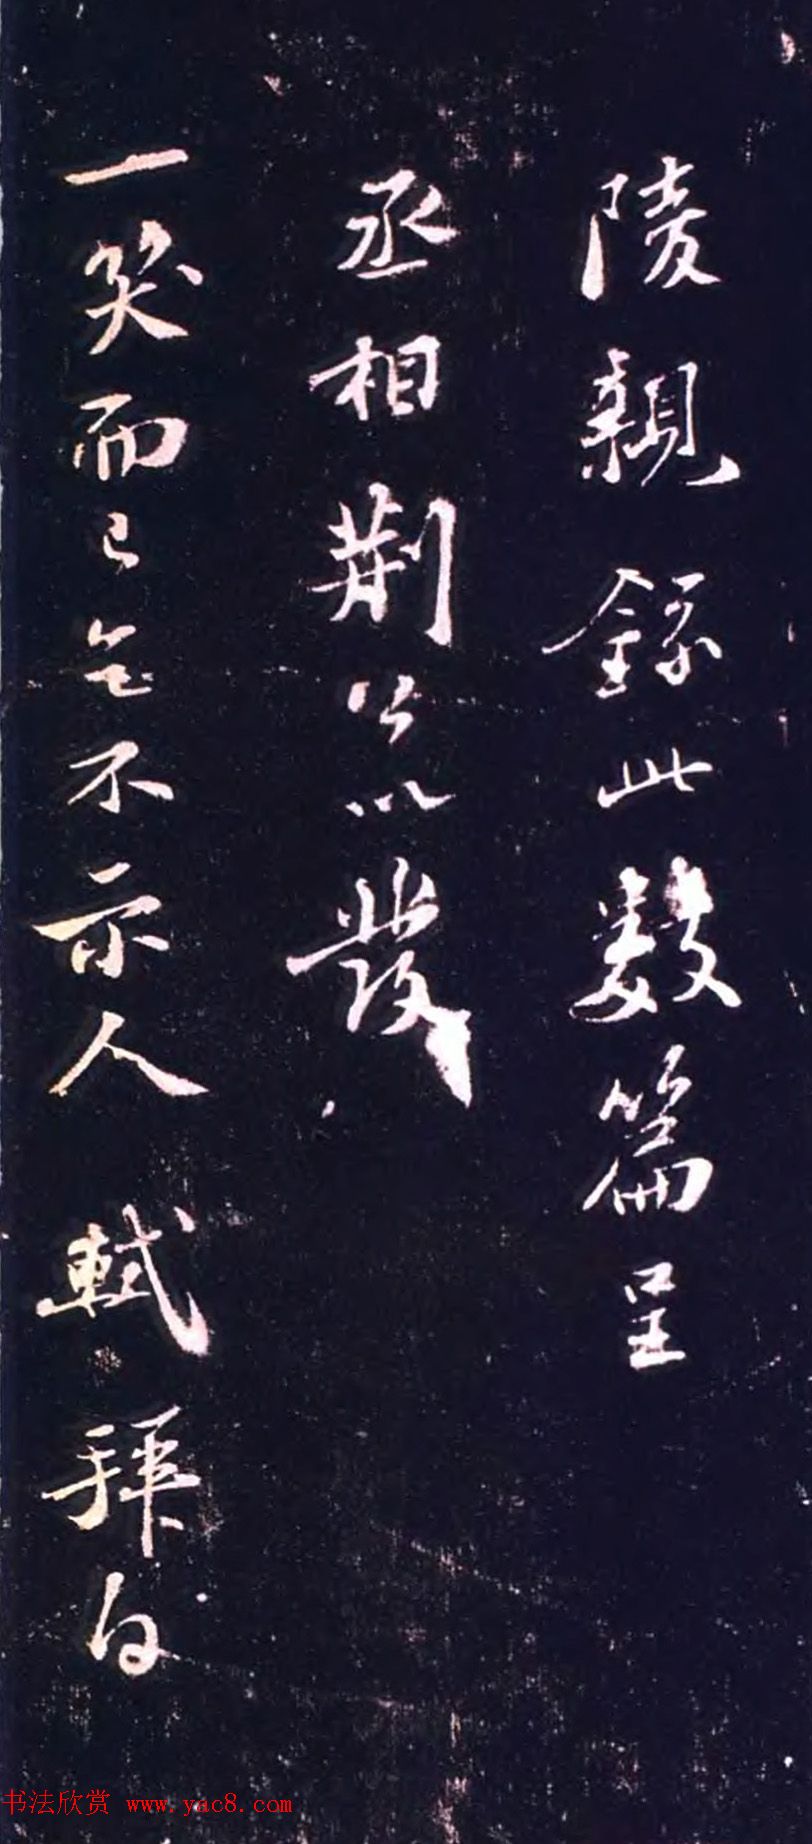 陵親録此數篇呈
丞相荆公以發
一笑而已乞不示人 軾拜白
书法欣赏 www.yac8.com